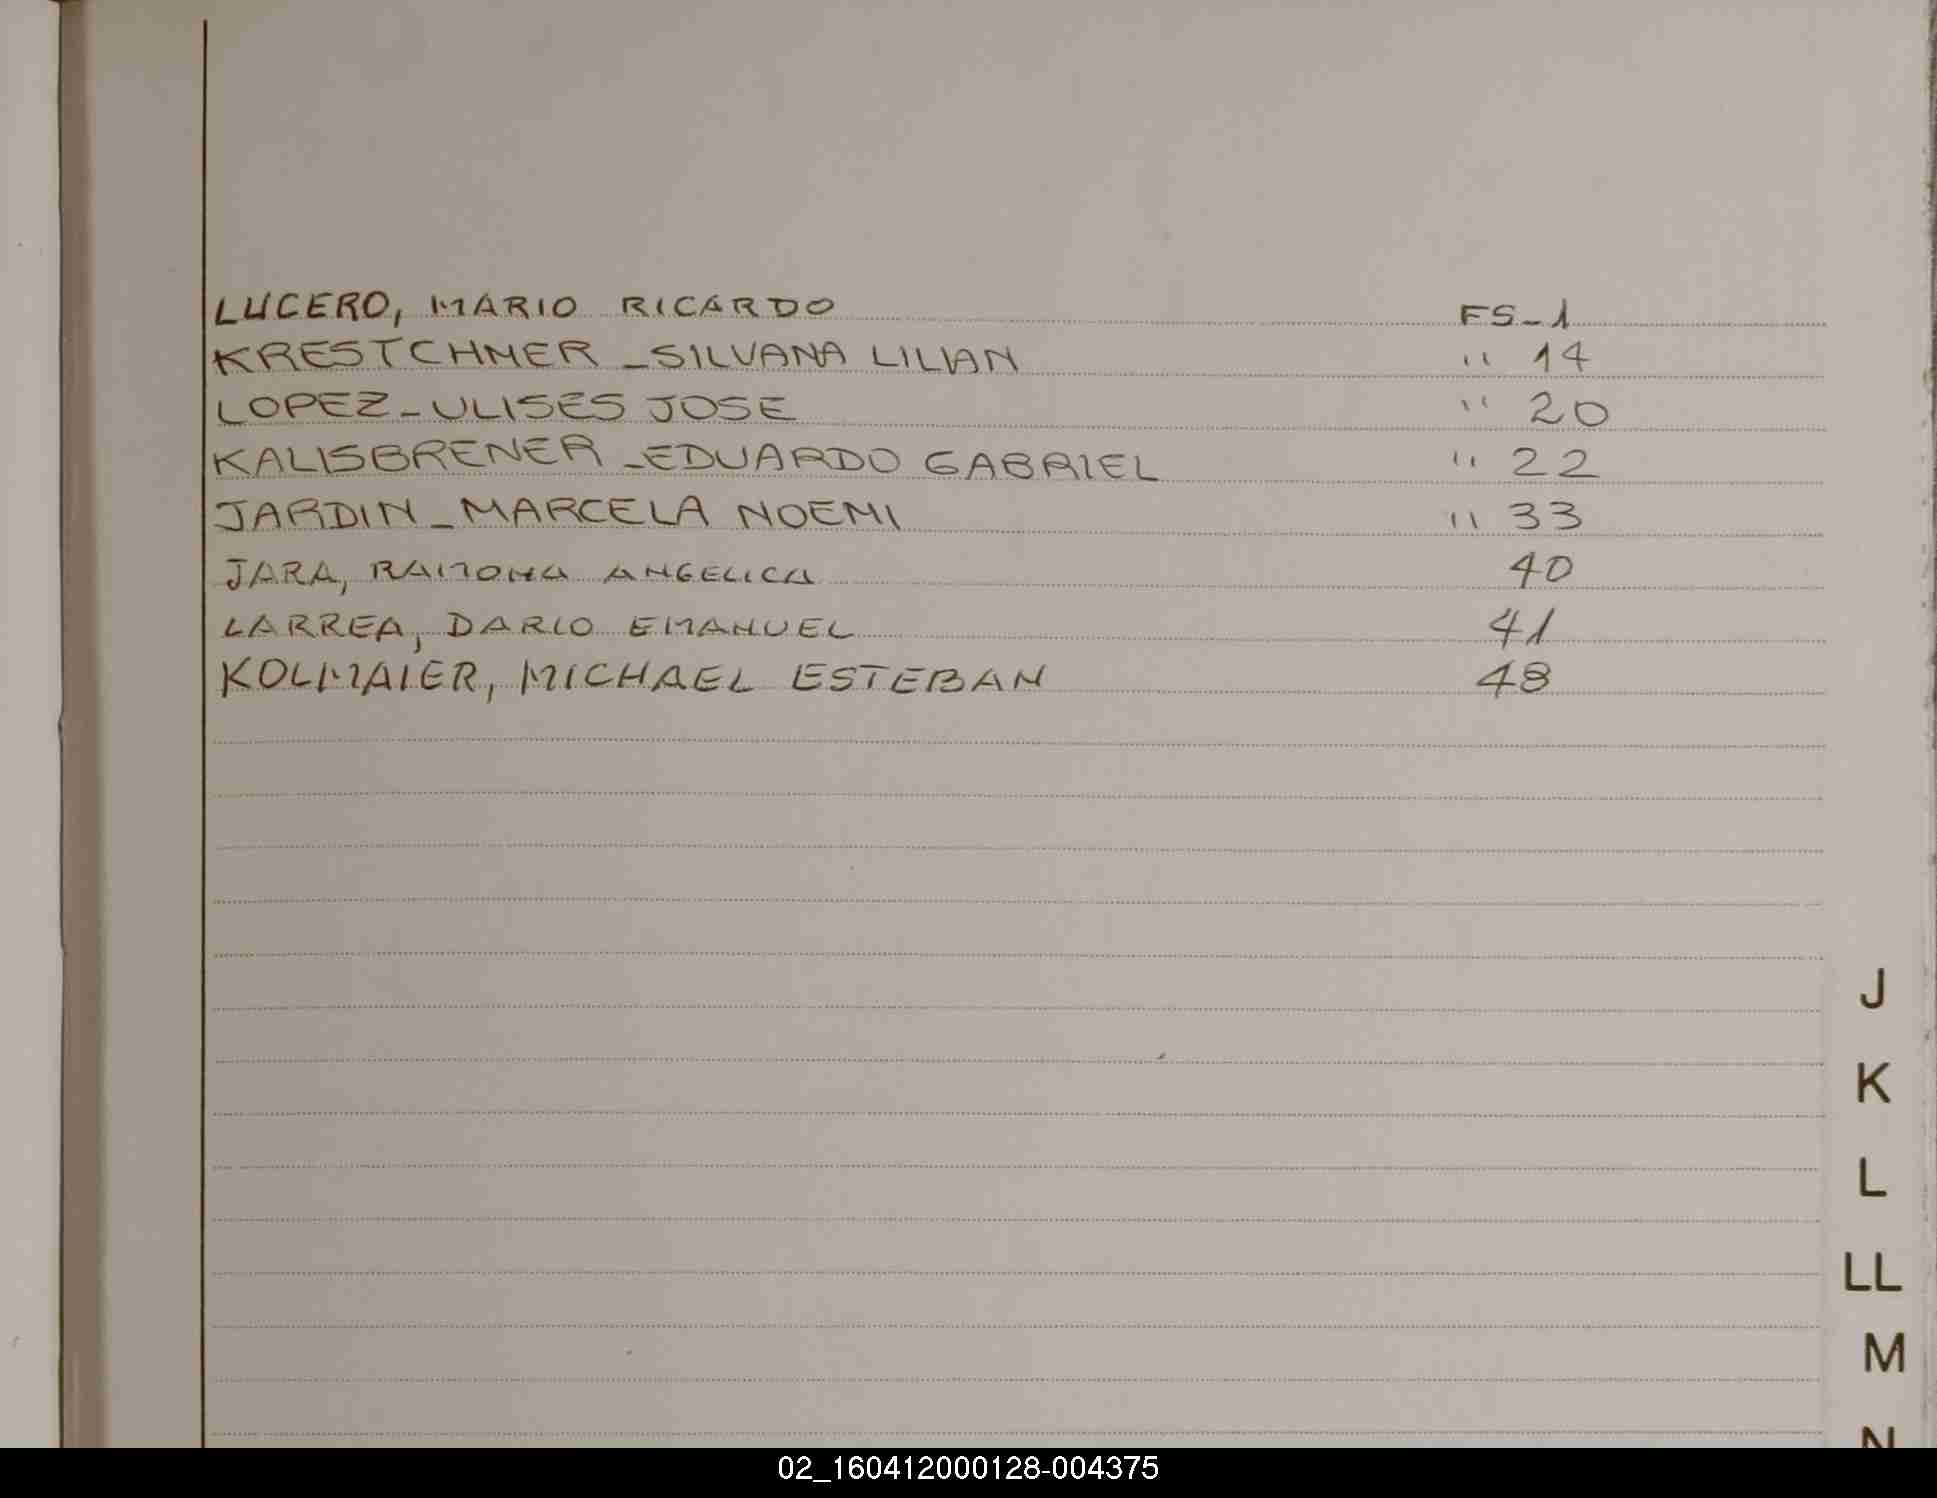 LUCERO, MARIO RICARDO FS_1
KRESTCHMER _SILVANA LILIAN '' 14
LOPEZ_ULISES JOSE '' 20
KALISBRENER _EDUARDO GABRIEL '' 22
JARDIN_MARCELA NOEMI '' 33
JARA, RAMONA ANGELICA 40
LARREA, DARIO EMANUEL 41
KOLMAIER, MICHAEL ESTEBAN 48
J
K
L
LL
M
N
02_160412000128-004375